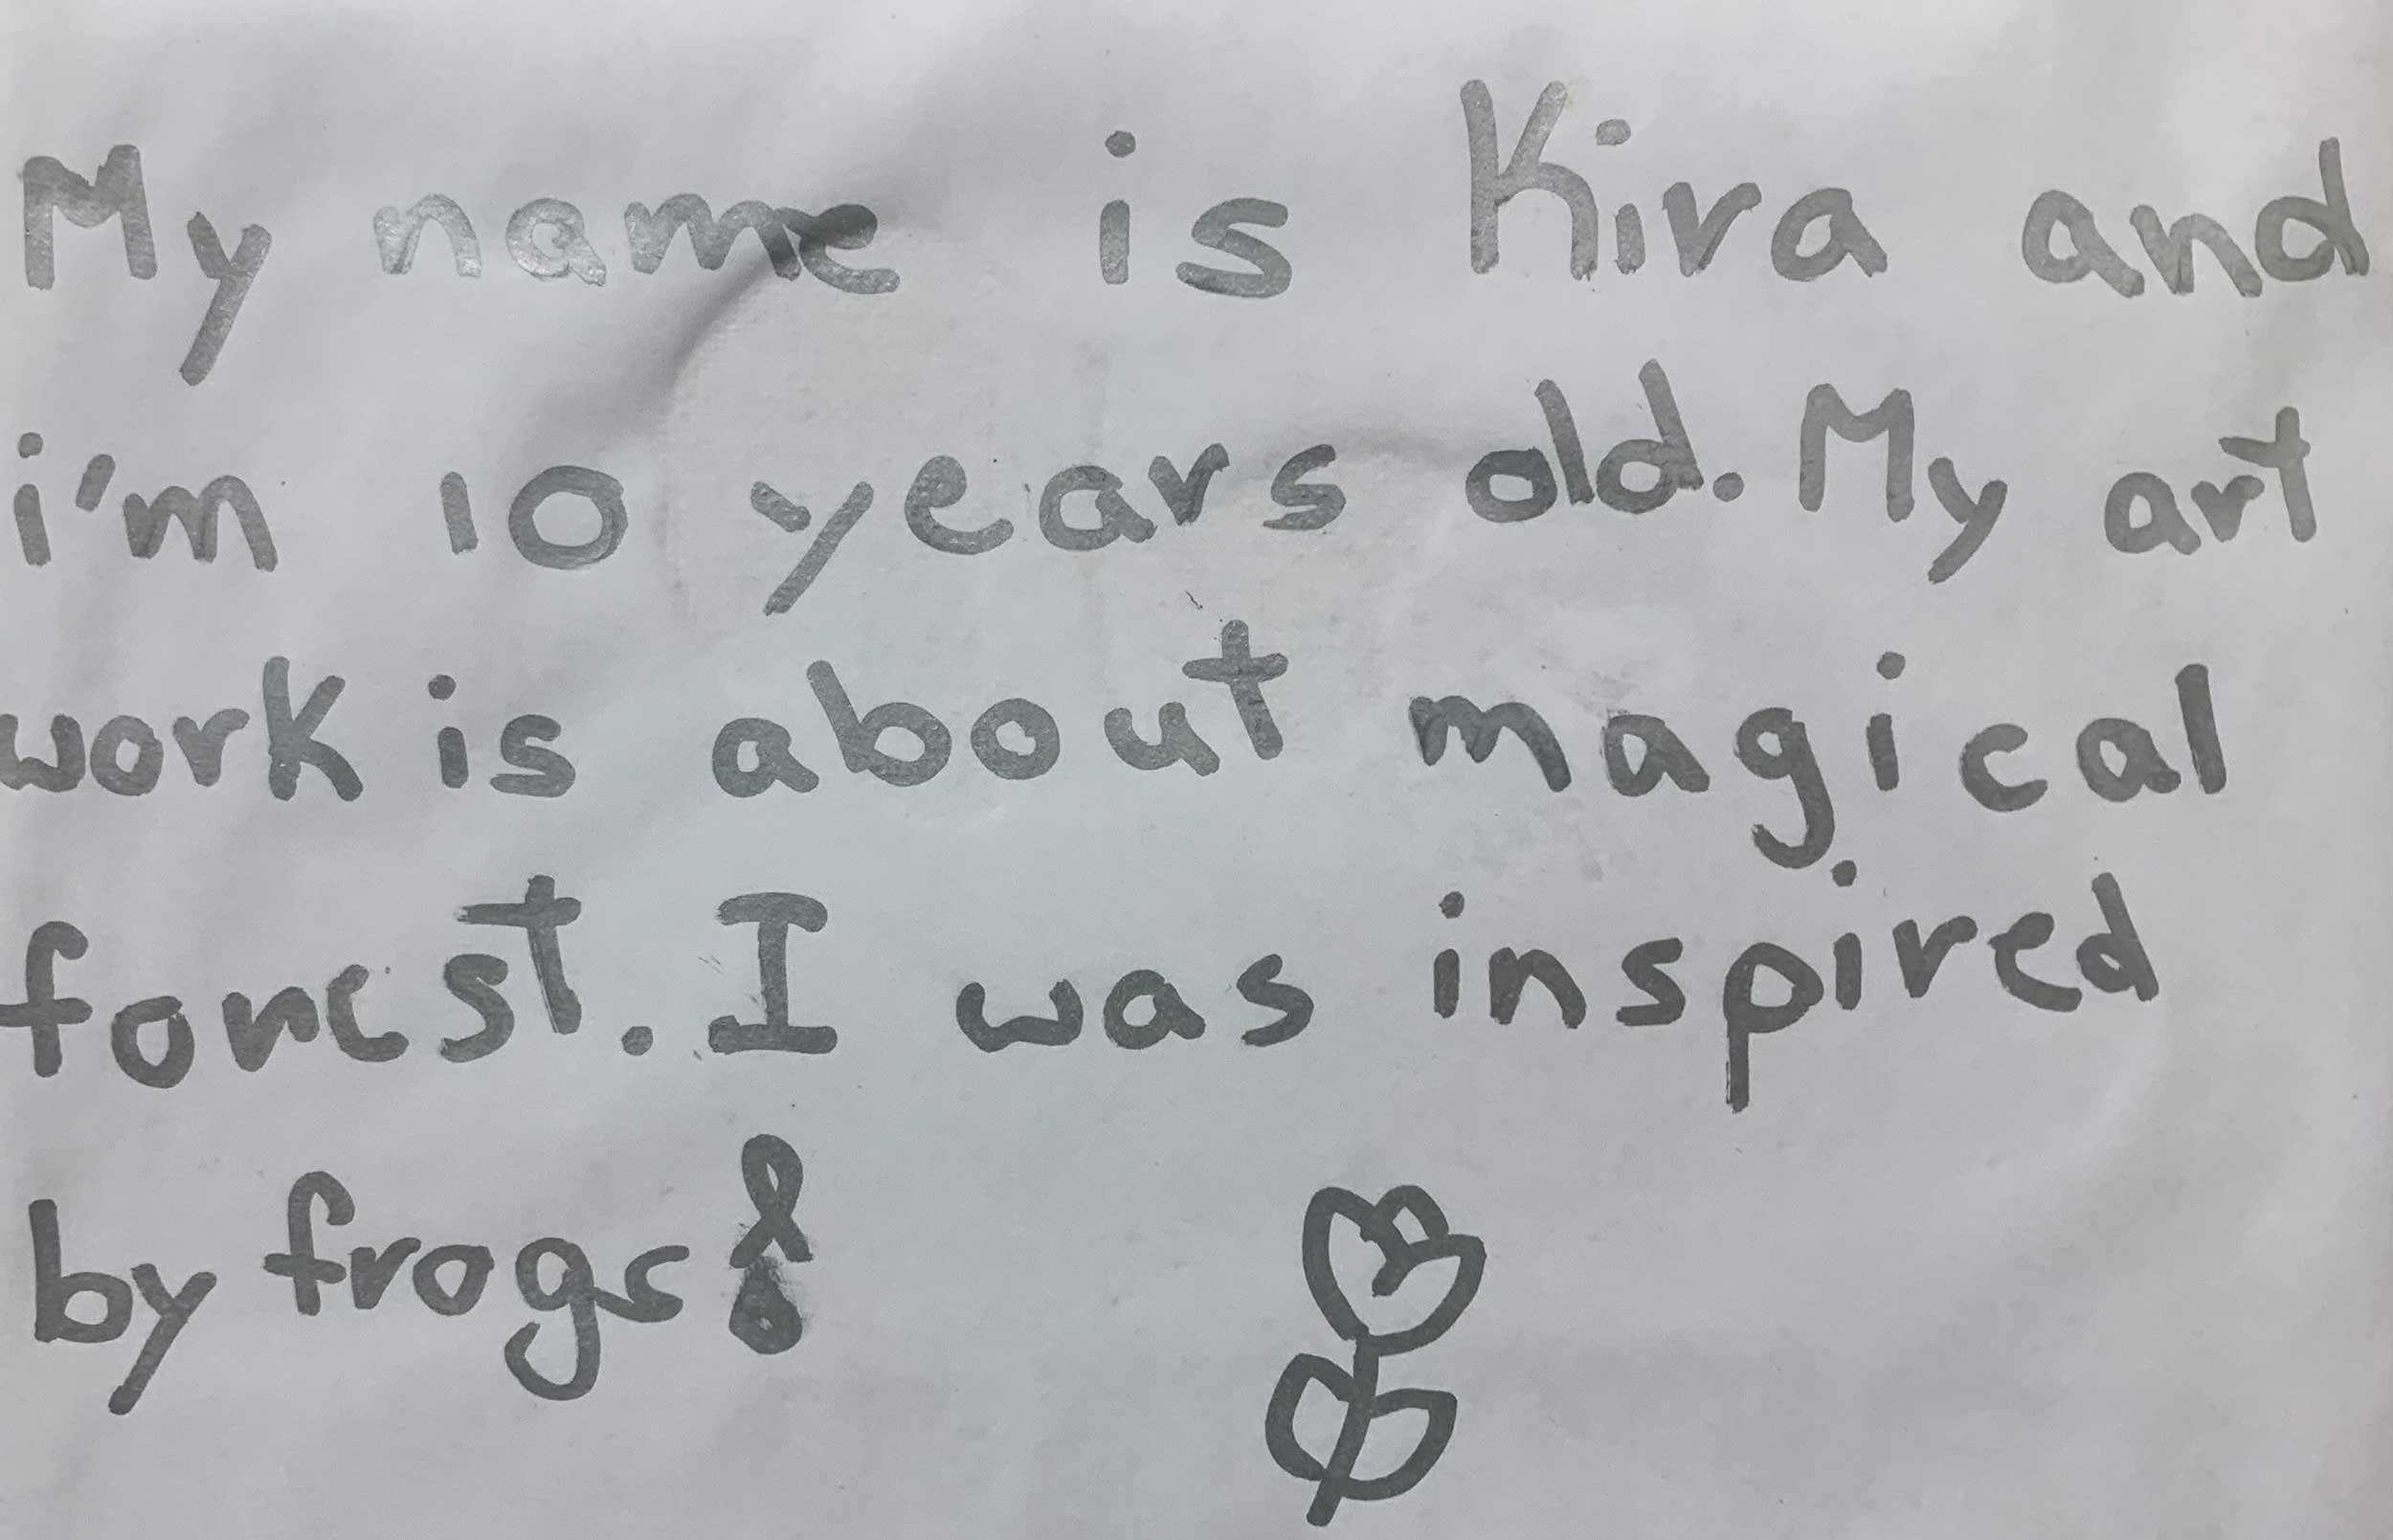 My name is Kira and
i'm 10 years old. My art
work is about magical
forest. I was inspired
by frogs!